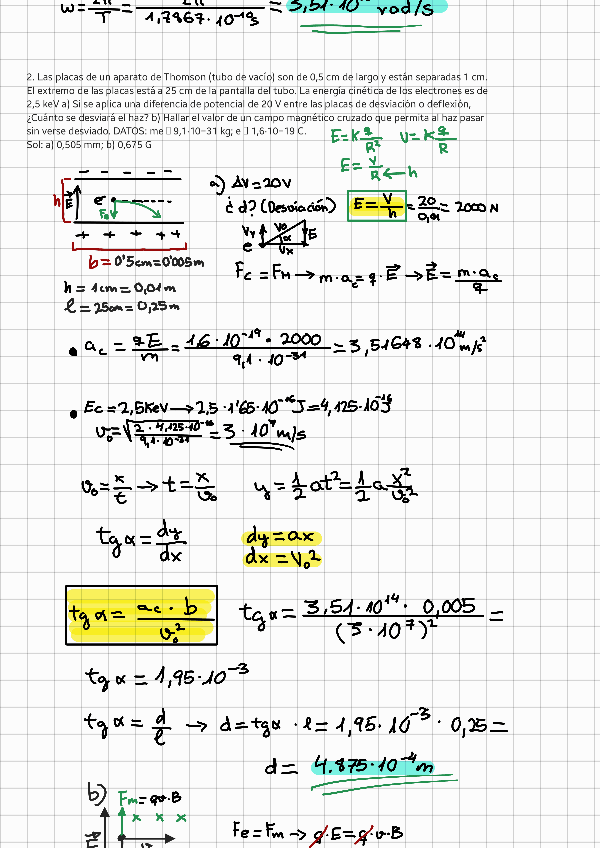 ω = 2π/T = 2π/1,7867·10⁻¹⁹s = 3,51·10 rad/s
2. Las placas de un aparato de Thomson (tubo de vacío) son de 0,5 cm de largo y están separadas 1 cm.
El extremo de las placas está a 25 cm de la pantalla del tubo. La energía cinética de los electrones es de
2,5 keV a) Si se aplica una diferencia de potencial de 20 V entre las placas de desviación o deflexión,
¿Cuánto se desviará el haz? b) Hallar el valor de un campo magnético cruzado que permita al haz pasar
sin verse desviado. DATOS: me □ 9,1·10−31 kg; e □ 1,6·10−19 C.
Sol: a) 0,505 mm; b) 0,675 G
E=K q/R² V=K q/R
E= V/R ← h
- - - - -
h E e⁻ Fe
+ + + + +
b = 0'5cm=0'005m
h = 1cm = 0,01m
l = 25cm = 0,25m
a) ΔV=20V
¿d? (Desviación)
E = V/h = 20/0,01 = 2000 N
Vy Vo E α e Vx
Fc = FM → m·ac = q·E → E = m·ac/q
• ac = qE/m = 1,6·10⁻¹⁹·2000/9,1·10⁻³¹ = 3,51648·10¹⁴ m/s²
• Ec = 2,5KeV → 2,5·1'65·10⁻¹⁶J = 4,125·10⁻¹⁶J
v₀ = √(2·4,125·10⁻¹⁶/9,1·10⁻³¹) = 3·10⁷ m/s
v₀ = x/t → t = x/v₀ y = 1/2 at² = 1/2 a x²/v₀²
tg α = dy/dx dy = ax
dx = V₀²
tg α = ac·b/v₀² tg α = 3,51·10¹⁴·0,005/(3·10⁷)² =
tg α = 1,95·10⁻³
tg α = d/l → d = tgα · l = 1,95·10⁻³·0,25 =
d = 4.875·10⁻⁴m
b) Fm = qv·B
x x x
Fe = Fm → q·E = q·v·B